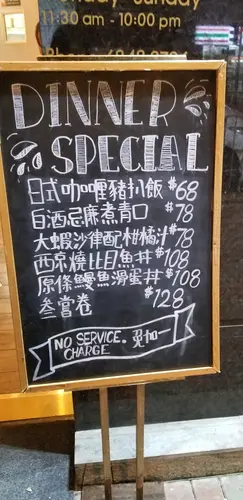 11:30 am - 10:00 pm
DINNER
SPECIAL
日式咖喱豬扒飯 $68
白酒忌廉煮青口 $78
大蝦沙律配柑橘汁 $78
西京燒比目魚丼 $108
原條鰻魚滑蛋丼 $108
叁嘗卷 $128
NO SERVICE. 免加一
CHARGE